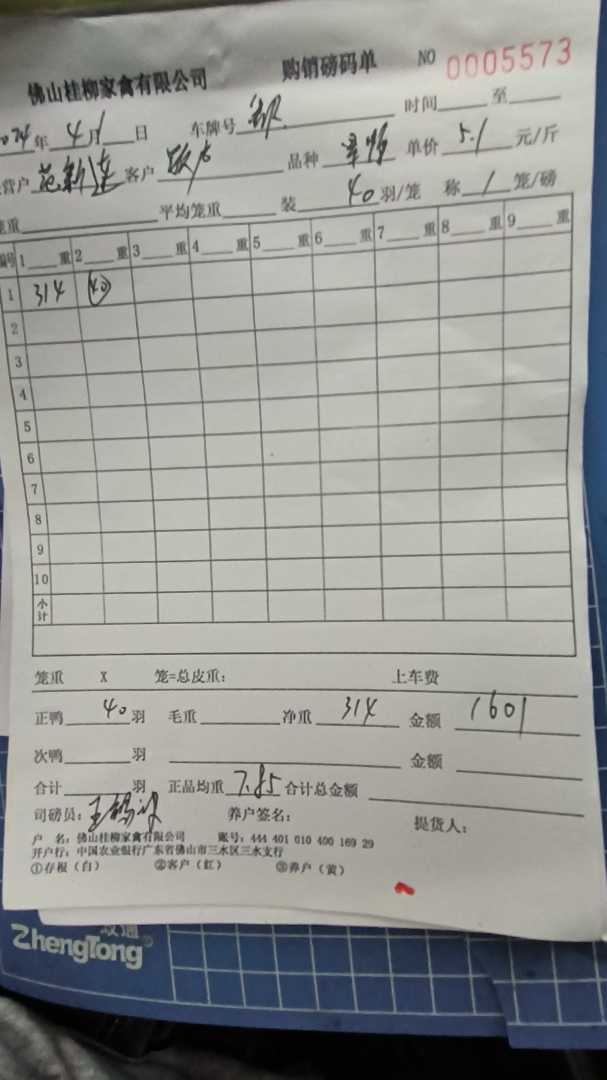 佛山桂柳家禽有限公司 购销磅码单 NO 0005573
年 4月1日 车牌号 时间 至
营户 范新连 客户 品种 单价 5.1 元/斤
笼重 平均笼重 装 40 羽/笼 称 1 笼/磅
编号 1 重 2 重 3 重 4 重 5 重 6 重 7 重 8 重 9 重
1 314 40
2
3
4
5
6
7
8
9
10
小计
笼重 X 笼=总皮重: 上车费
正鸭 40 羽 毛重 净重 314 金额 1601
次鸭 羽 金额
合计 羽 正品均重 7.85 合计总金额
司磅员: 养户签名: 提货人:
户 名: 佛山桂柳家禽有限公司 账号: 444 401 010 400 169 29
开户行: 中国农业银行广东省佛山市三水区三水支行
①存根(白) ②客户(红) ③养户(黄)
ZhengTong®